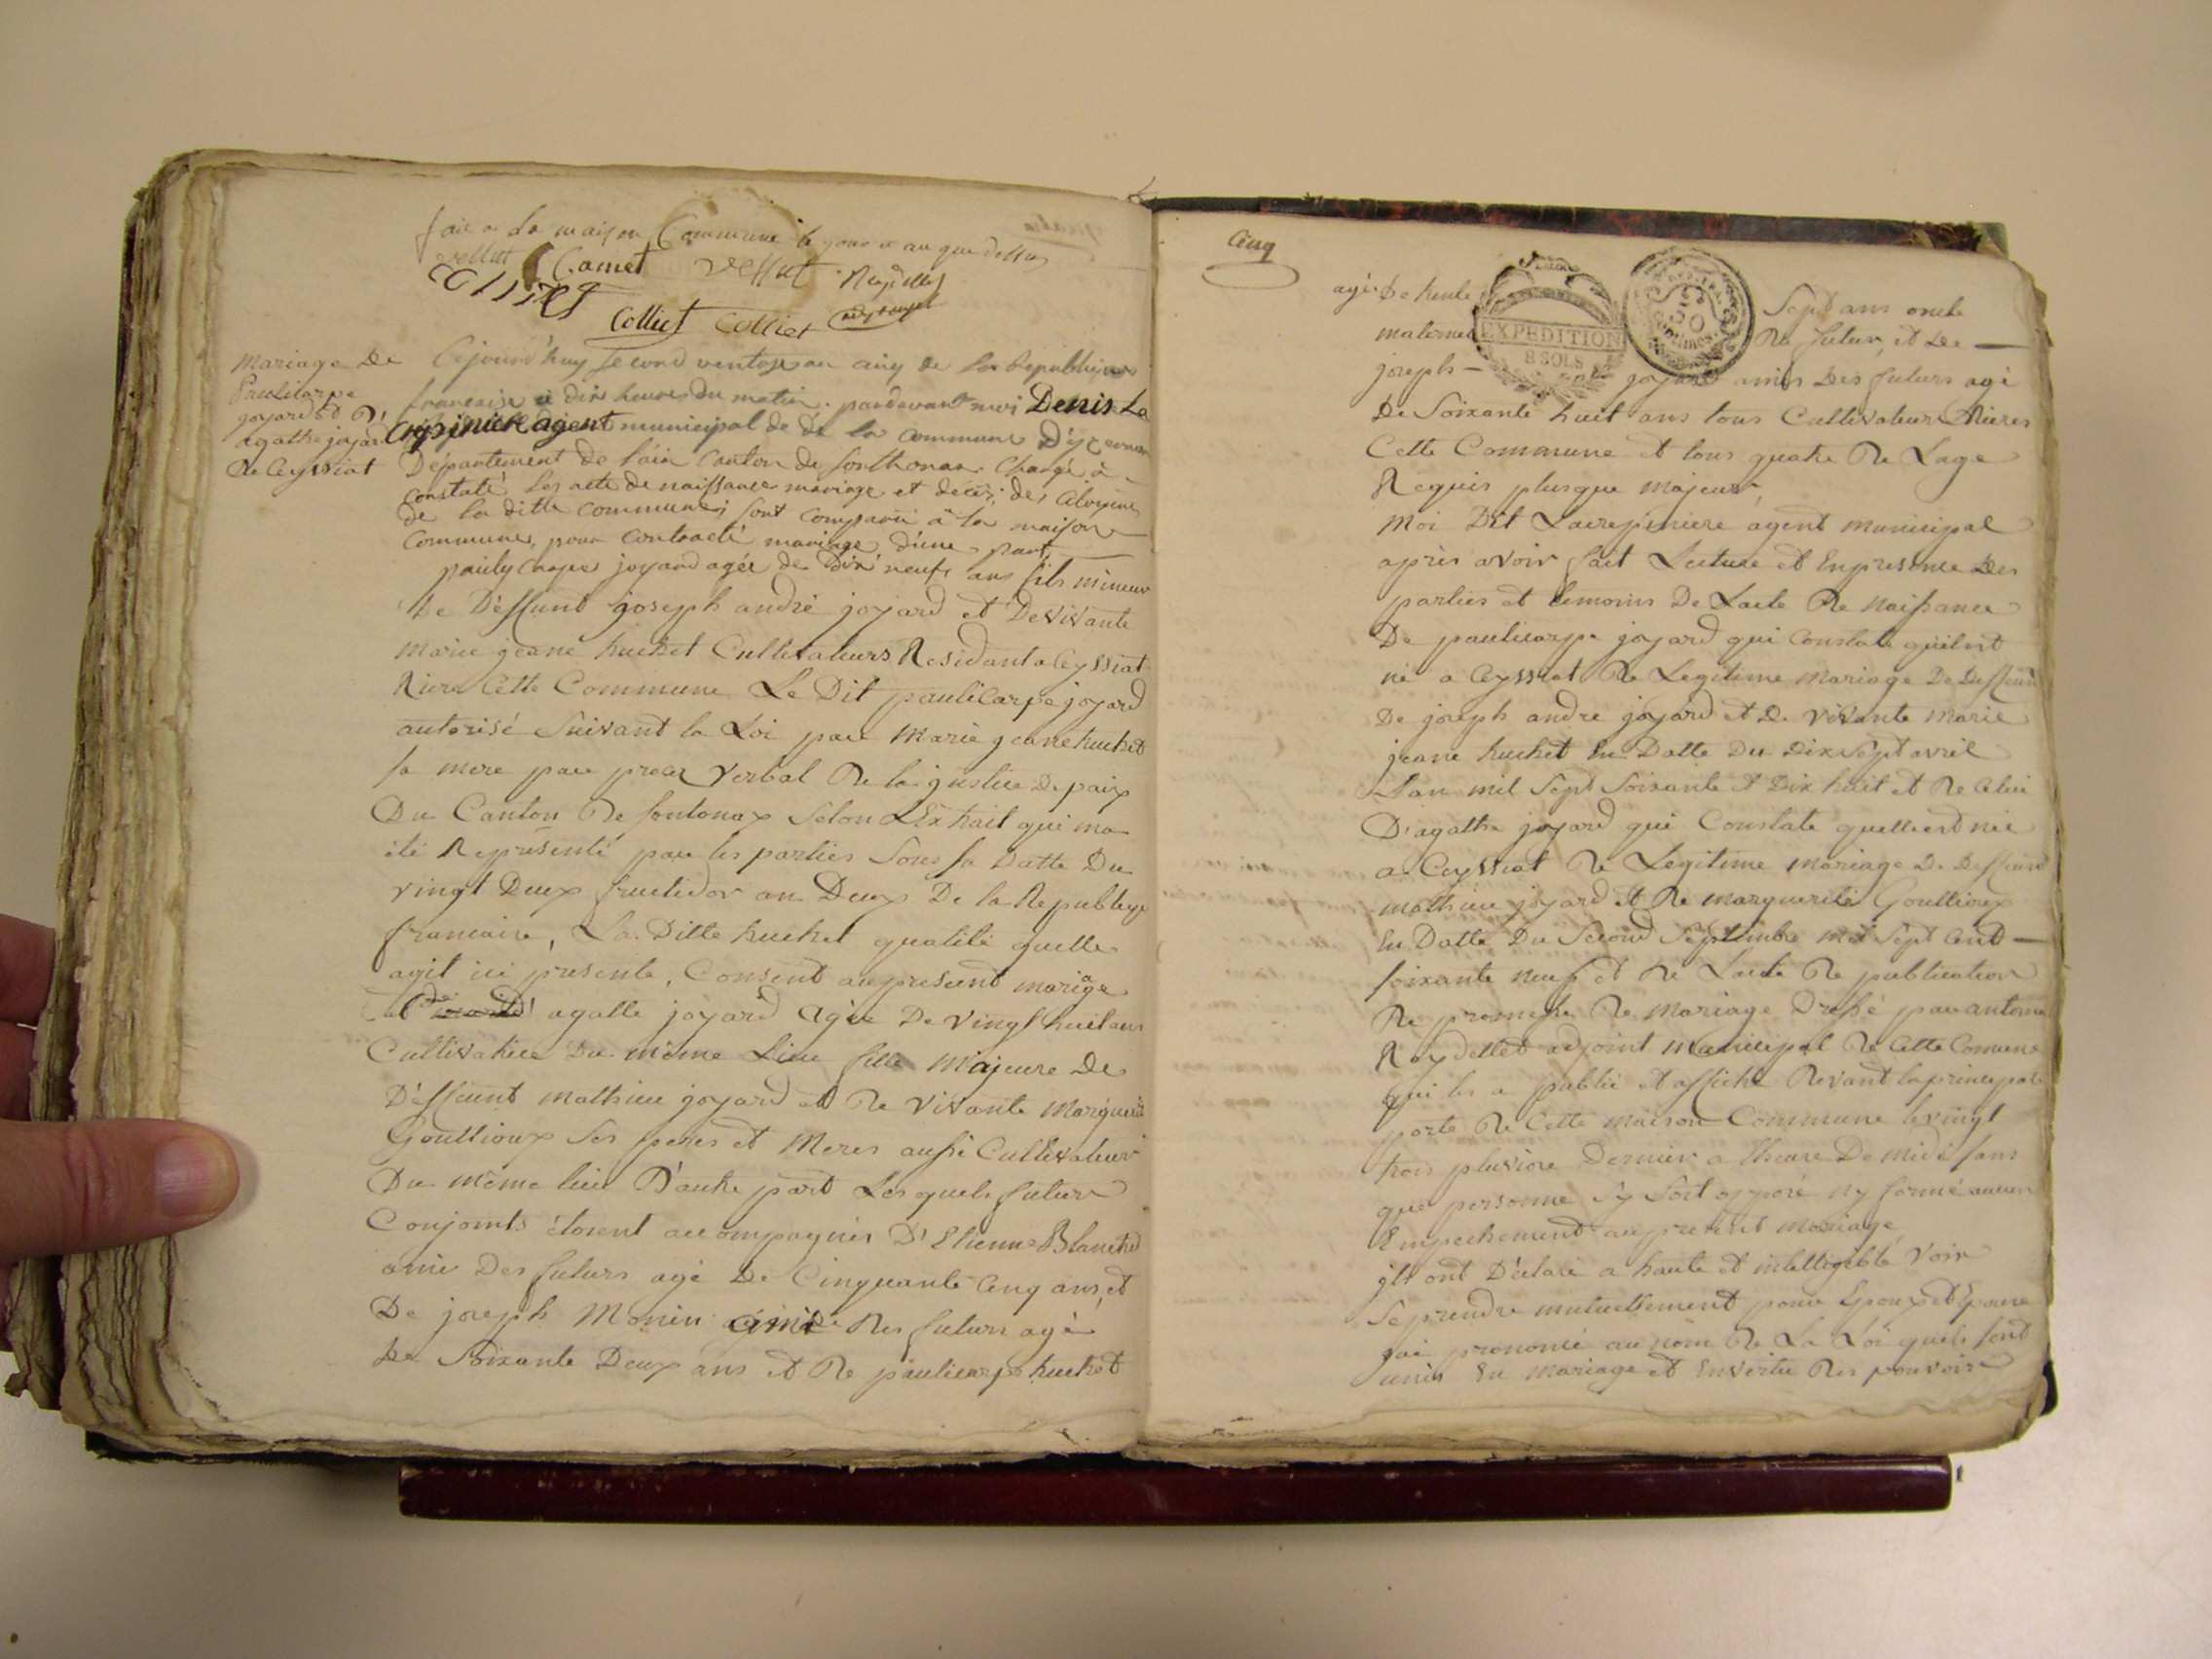 fait a la maison Commune le jour et an que dessus
vellut Camet vellut Reydellet
Colliet Colliet
mariage de
Paulicarpe
joyard et d'
agathe joyard
de Ceyssiat
Cejourd'huy second ventose an cinq de la republique
francaise a dix heures du matin. pardevant moi Denis La
Crepiniere agent municipal de de la commune d'yzernore
Département de l'ain Canton de sonthonax Chargé à
constaté les acte de naissance mariage et deces des Citoyens
de la ditte commune, sont comparu à la maison
Commune, pour contracté mariage d'une part,
paulycarpe joyard agée de dix neufs ans fils mineur
de Deffunt joseph andré joyard et De vivante
marie jeane huchet Cultivateurs Residant a Ceyssiat
Riere Cette Commune Le Dit paulicarpe joyard
autorisé Suivant la Loi par Marie jeane huchet
sa mere par proces verbal De la justice De paix
Du Canton De sontonax Selon LExtrait qui ma
été Représenté par les parties Sous la Datte Du
vingt Deux fructidor an Deux De la Republique
francaise, La Ditte huchet qualité quelle
agit ici presente, Consent au present mariage
Et agatte joyard agée De vingt huit ans
Cultivatrice Du même Lieu fille Majeure De
Déffeunt mathieu joyard et De vivante Marguerite
Gouttioux Ses peres et Meres aussi Cultivateurs
Du même lieu D'autre part Les quels futurs
Conjoints étoient accompagnés D'Etienne Blanchet
amie Des futurs agé De Cinquante Cinq ans, et
De joseph Monin amie Des futurs agé
De Soixante Deux ans et De paulicarpe huchet
Cinq
agé De trente Sept ans oncle
maternel Du futur, et De
joseph joyard amis Des futurs agé
EXPEDITION
8 SOLS
50
Centimes
De Soixante huit ans tous Cultivateurs Rieres
Cette Commune et tous quatre De Lage
Requis plusque majeur,
Moi Dit Lacrepiniere agent municipal
après avoir fait Lecture et En presence Des
parties et temoins De Lacte De Naissance
De paulicarpe joyard qui Constate quil est
né a Ceyssiat De Legitime Mariage De Deffeunt
De joseph andre joyard et De vivante Marie
jeane huchet En Datte Du Dix Sept avril
Lan mil Sept Soixante et Dix huit et De Celui
D'agathe joyard qui Constate quelle est née
a Ceyssiat De Legitime Mariage De Deffeunt
mathieu joyard et De marguerite Gouttioux
En Datte Du Second Septembre mil Sept Cent
Soixante neuf et De Lacte De publication
De promesse De Mariage Dressé par antoine
Reydellet adjoint Municipal De Cette Comune
qui les a publié et affiché Devant la principale
porte De Cette maison Commune le vingt
trois pluviose Dernier a Lheure De midi sans
que personne Sy Soit opposé ny formé aucun
Empechement au present Mariage
jls ont Déclaré a haute et intelligible Voix
Se prendre mutuellement pour Epoux et Epouse
jai prononcé au nom De La Loi quils sont
unis En Mariage et En vertu Des pouvoirs